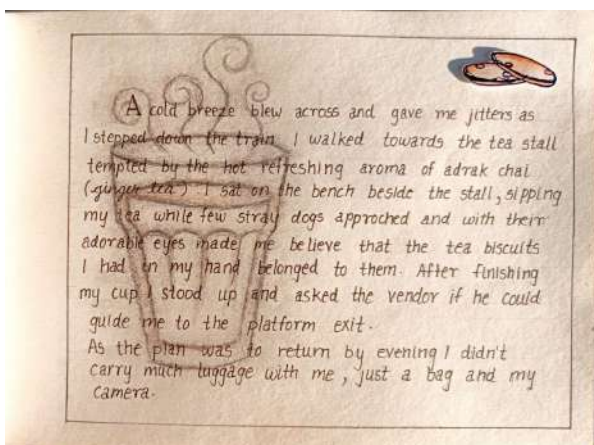 A cold breeze blew across and gave me jitters as
I stepped down the train. I walked towards the tea stall
tempted by the hot refreshing aroma of adrak chai
(ginger tea) I sat on the bench beside the stall, sipping
my tea while few stray dogs approched and with their
adorable eyes made me believe that the tea biscuits
I had in my hand belonged to them. After finishing
my cup I stood up and asked the vendor if he could
guide me to the platform exit.
As the plan was to return by evening I didn't
carry much luggage with me, just a bag and my
camera.